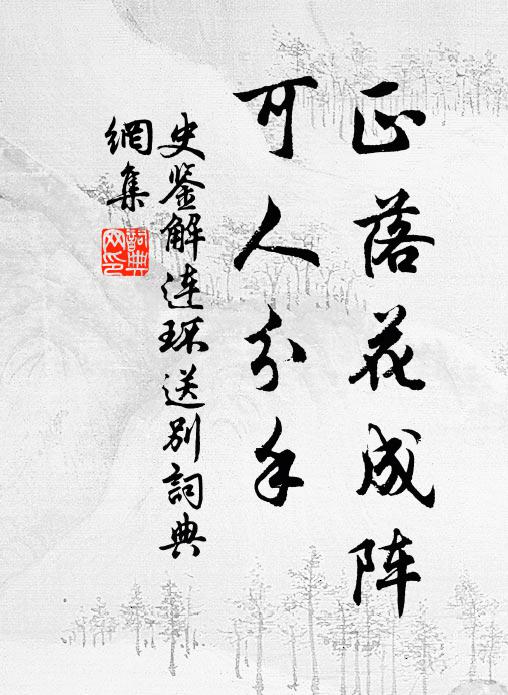 正落花成阵
可人分手
史鉴解连环送别词典
網集
詞典網印